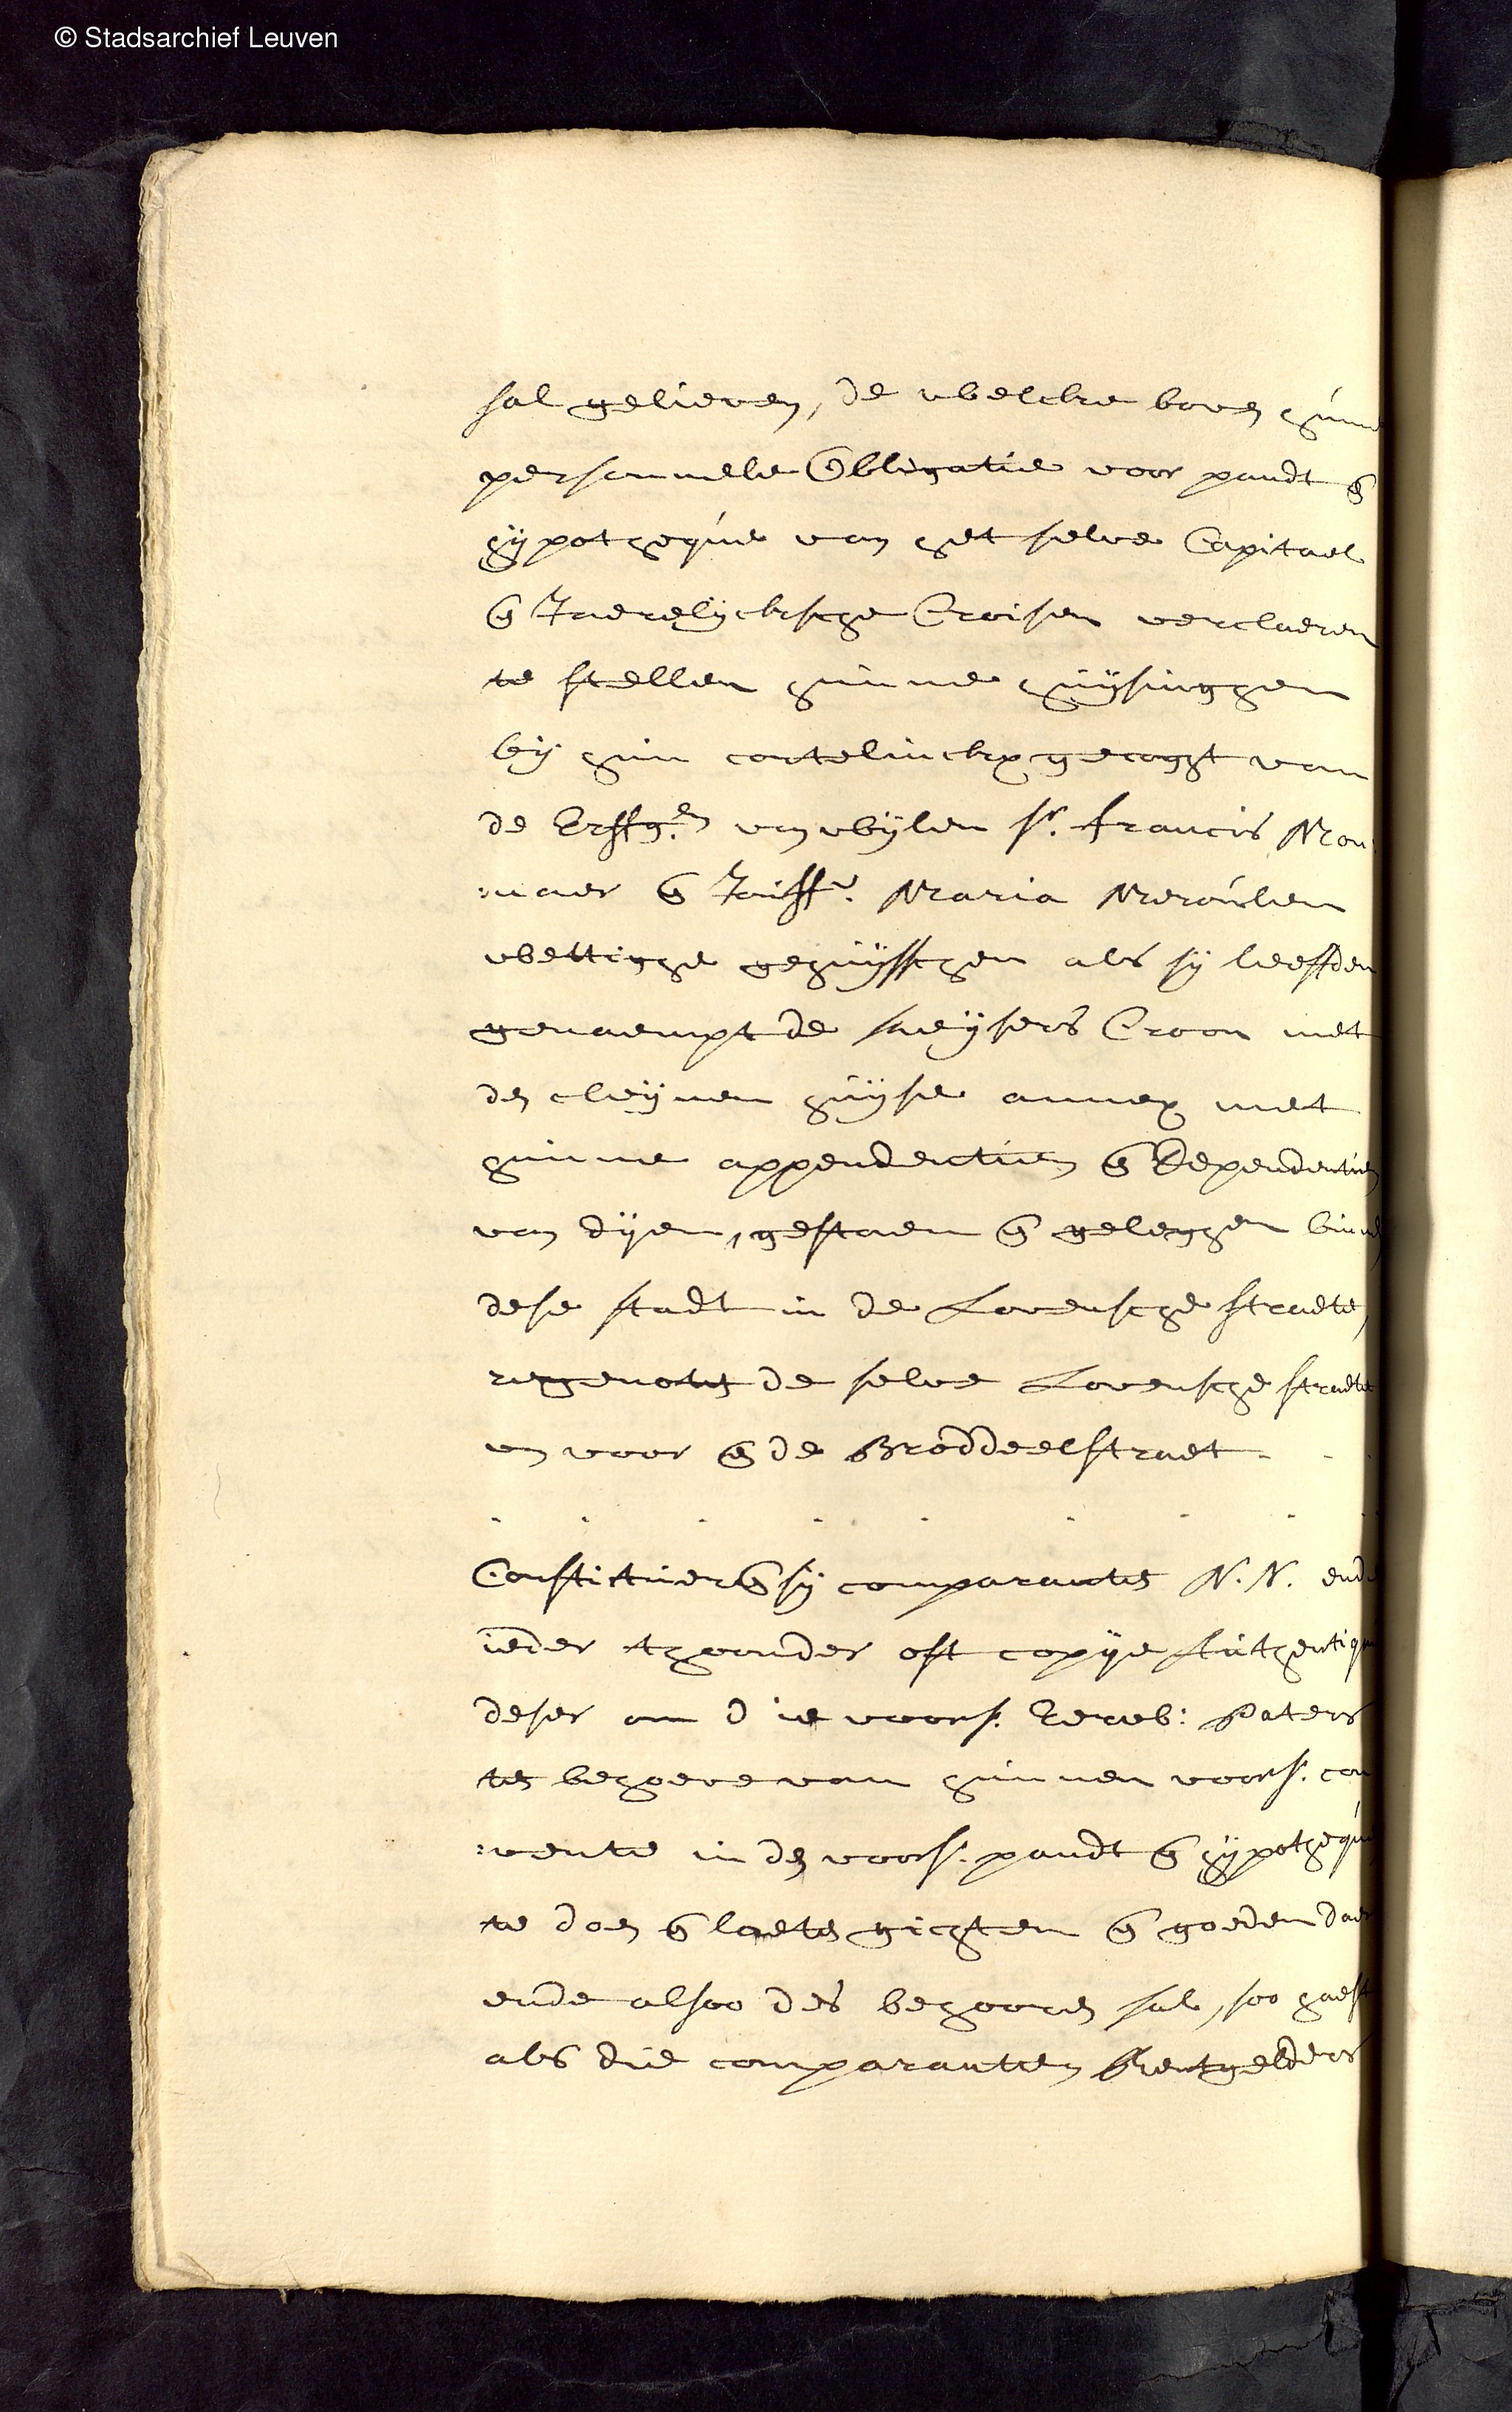 © Stadsarchief Leuven
sal gelieven, de welcke boven hunne
personnele Obligatie voor pandt en
hypotheque van het selve Capitael
en Jaerelijcksche Croisen verclaeren
te stellen hunne huijsinghen
bij hun coutelinckx gecoght van
de Erffg.en van wijlen sr. francis Mom
:maer en Jouffe. Maria
wettighe gehuijsschen als sij leeffden
genaempt de keijsers Croon met
den cleijnen huijse annex met
hunne appendentien en Dependentien
van dijen, gestaen en geleghen binnen
dese stadt in de Lovensche straete,
regenoten de selve Lovensche straete
en voor en de Broddeelstraet - - -
- - - - - - - - -
Constitueren sij comparanten N. N. ende
ieder thoonder oft copije Authentique
deser om die voors. Eerw: Paters
ten behoeve van hunnen voors. con
:vente in den voors. pandt en hypotheque
te doen en laeten gichten en goeden daer
ende alsoo des behooren sal, soo haest
als die comparanten Rentgelders